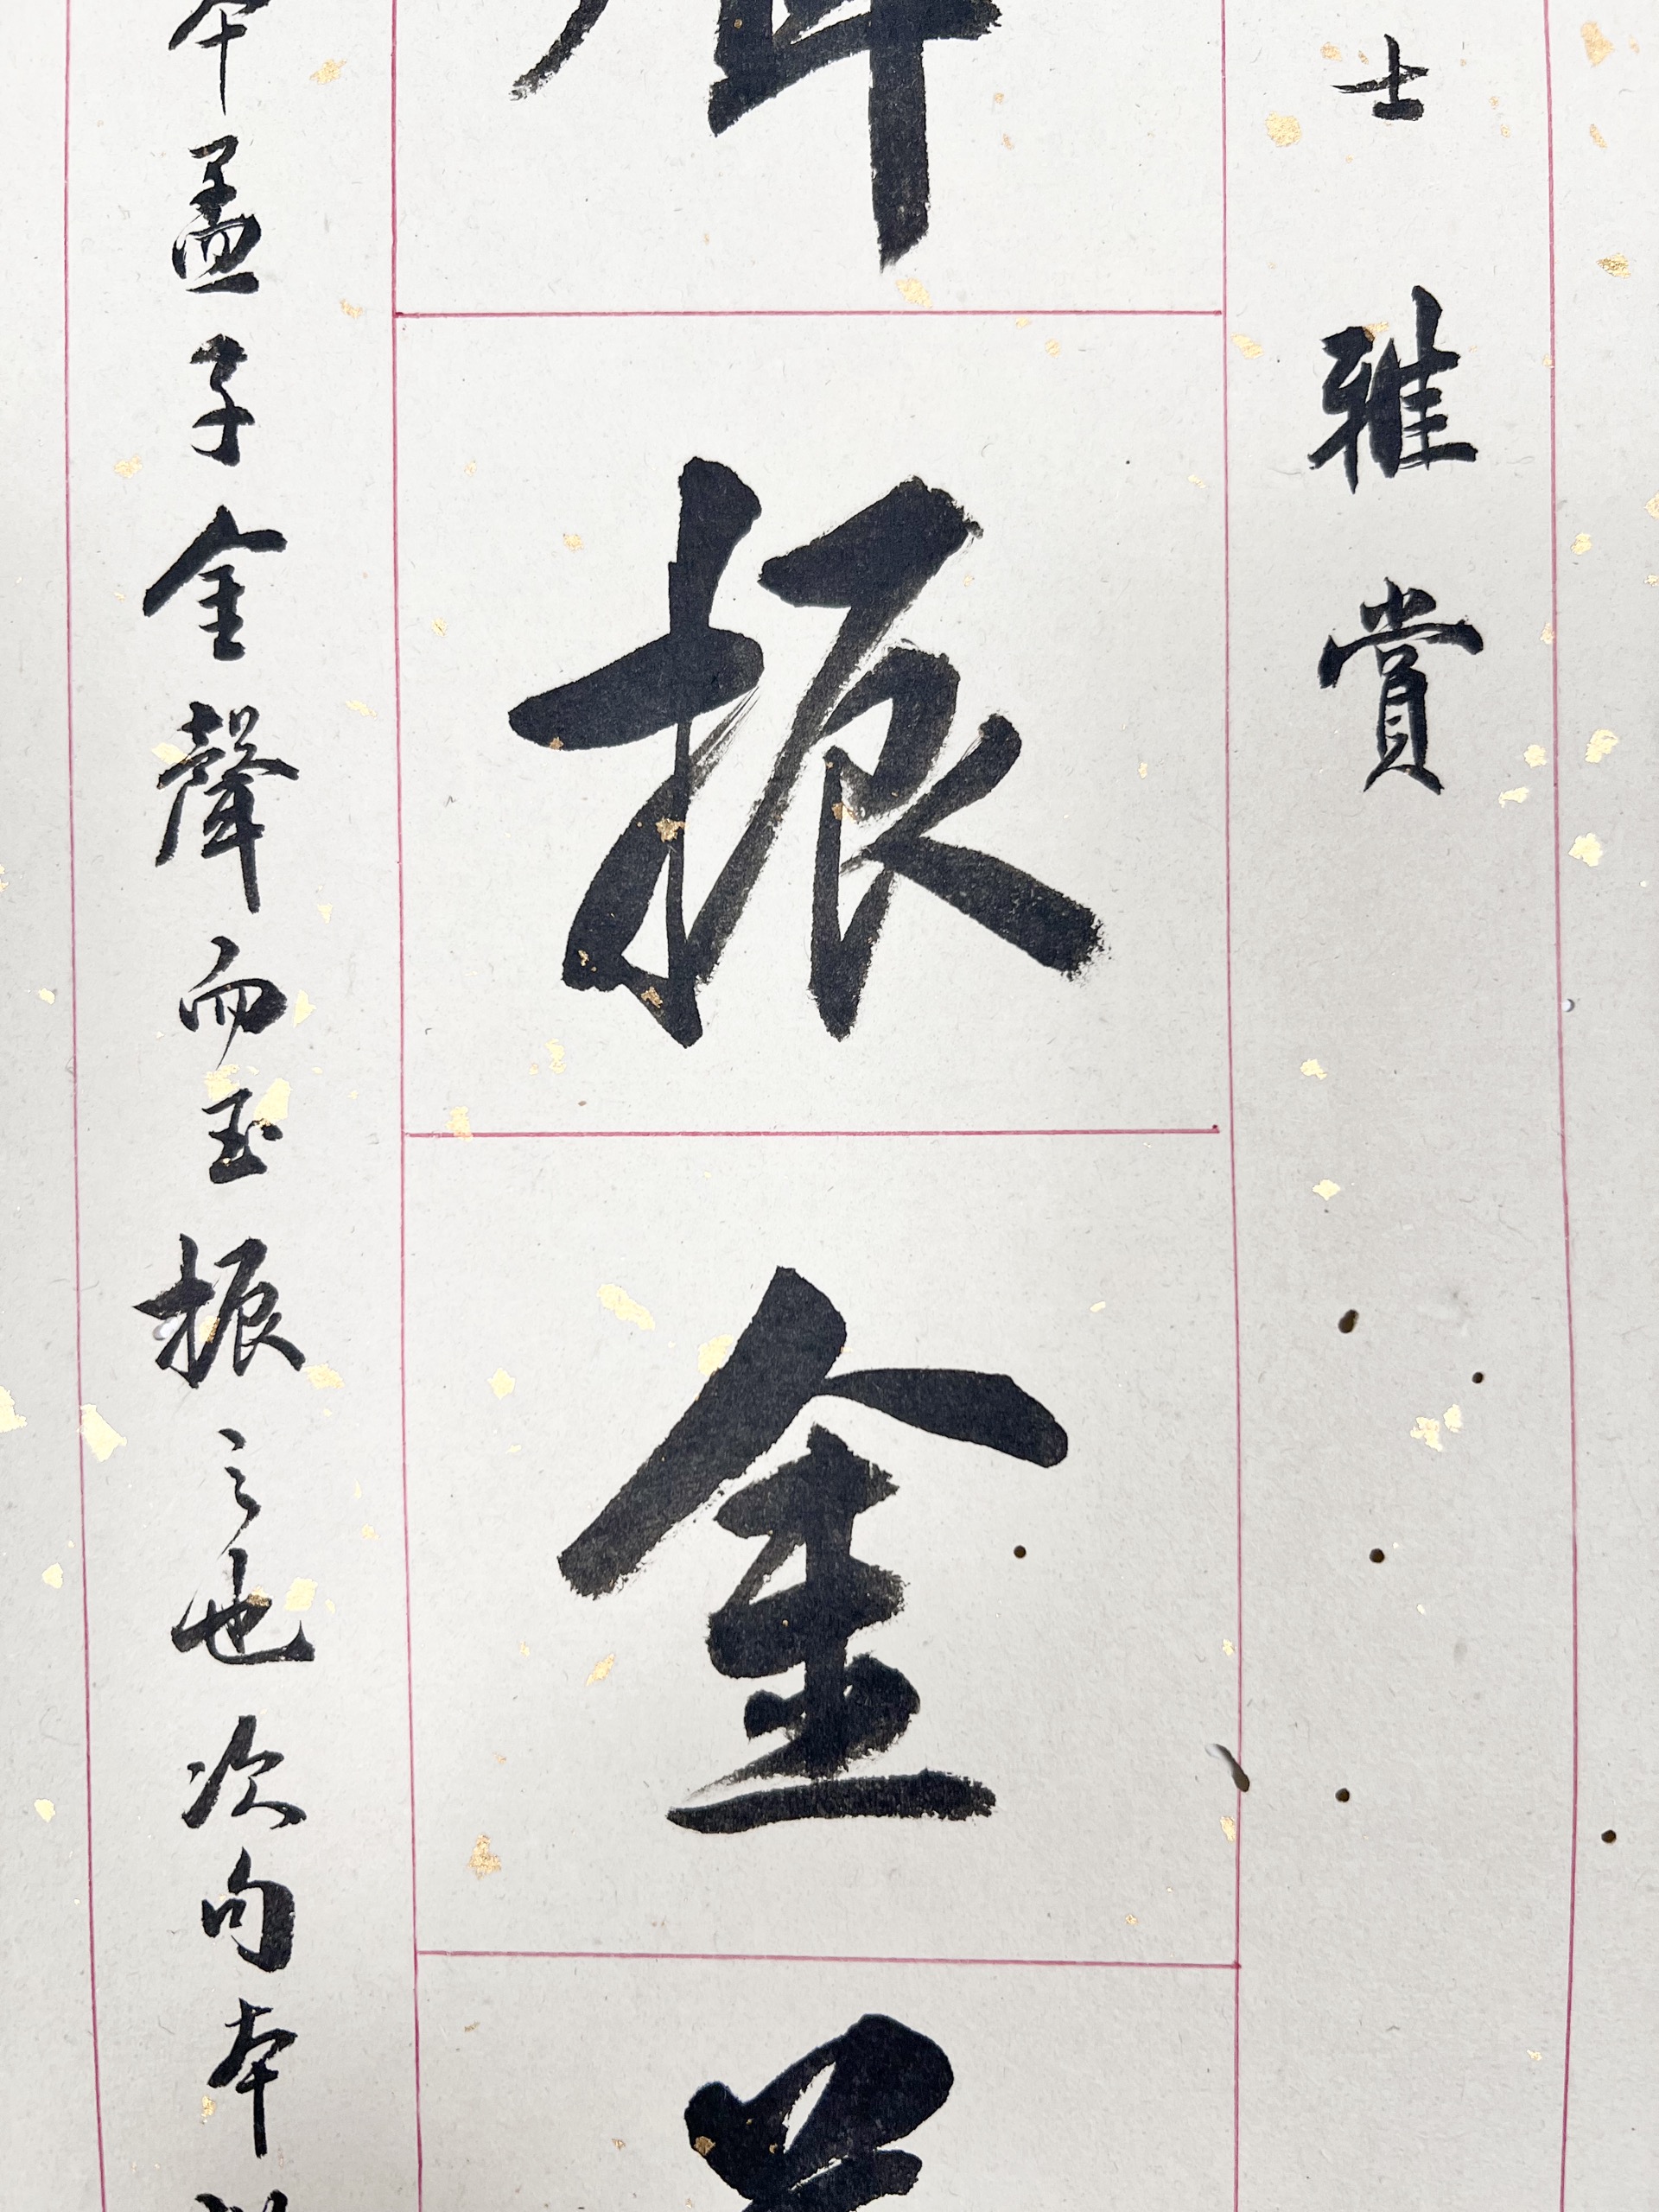 士雅賞
聲振金
本孟子金聲而玉振之也次句本